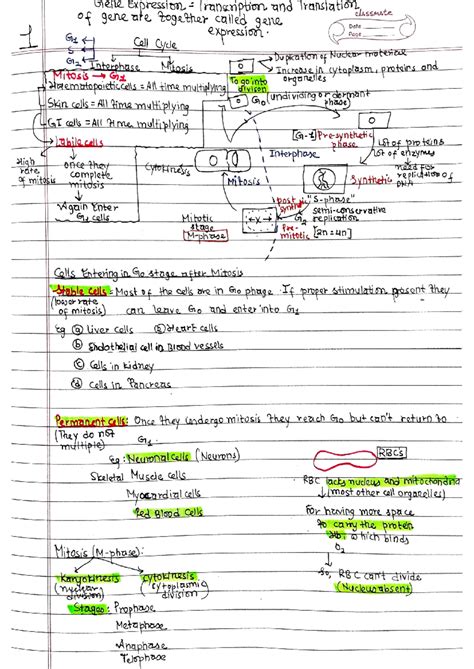 Gene Expression = Transcription and Translation
of gene together called gene
expression.
classmate
Date
Page
1
G1
S
G2
Cell Cycle
Interphase
Mitosis
Mitosis → G1
Haematopoietic cells = All time multiplying
Skin cells = All time multiplying
GI cells = All time multiplying
Labile cells
High rate of mitosis
once they complete mitosis
Again Enter G1 cells
To go into division
→ Duplication of Nuclear material
→ Increase in cytoplasm, proteins and organelles
G0 (undividing or dormant phase)
[G-1] Pre-synthetic phase
Lot of proteins
Lot of enzymes
need for replication of DNA
Interphase
Synthetic
"S-phase"
semi-conservative replication
[2n=4n]
G2
Post synthetic
Pre-mitotic
Cytokinesis
Mitosis
Mitotic stage
M-phase
Cells Entering in G0 stage after Mitosis
Stable Cells = Most of the cells are in G0 phase. If proper stimulation present they
(lower rate of mitosis)
can leave G0 and enter into G1
Eg (a) Liver cells (e) Heart cells
(b) Endothelial cell in Blood vessels
(c) Cells in Kidney
(d) Cells in Pancreas
Permanent cells: Once they undergo mitosis They reach G0 but can't return to
(They do not multiple)
G1
Eg: Neuronal cells (Neurons)
Skeletal Muscle cells
Myocardial cells
Red Blood Cells
RBCs
RBC lacks nucleus and mitochondria
(most other cell organelles)
For having more space
to carry the protein
Hb, which binds
O2
So, RBC can't divide
(Nucleus absent)
Mitosis (M-phase):
Karyokinesis
(nuclear division)
cytokinesis
(cytoplasmic division)
Stages: Prophase
Metaphase
Anaphase
Telophase